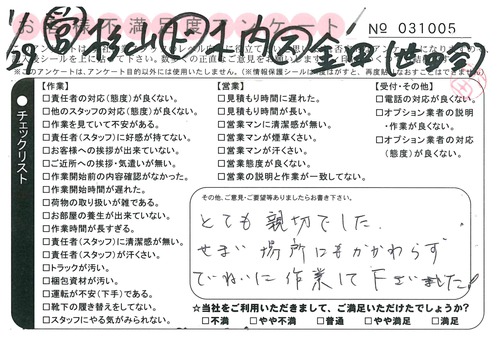 お客様不満足度アンケート
1/29 営 杉山 下 木内 金田(世田谷)
No 031005
※このアンケートは、アンケート目的以外には使用いたしません。(※情報保護シールは一度はがすと、再度貼りなおすことはできません)
チェックリスト
【作業】
□責任者の対応(態度)が良くない。
□他のスタッフの対応(態度)が良くない。
□作業を見ていて不安がある。
□責任者(スタッフ)に好感が持てない。
□お客様への挨拶が出来ていない。
□ご近所への挨拶・気遣いが無い。
□作業開始前の内容確認がなかった。
□作業開始時間が遅れた。
□荷物の取り扱いが雑である。
□お部屋の養生が出来ていない。
□作業時間が長すぎる。
□責任者(スタッフ)に清潔感が無い。
□責任者(スタッフ)が汗くさい。
□トラックが汚い。
□梱包資材が汚い。
□運転が不安(下手)である。
□靴下の履き替えをしてない。
□スタッフにやる気がみられない。
【営業】
□見積もり時間に遅れた。
□見積もり時間が長い。
□営業マンに清潔感が無い。
□営業マンが煙草くさい。
□営業マンが汗くさい。
□営業態度が良くない。
□営業の説明と作業が一致してない。
【受付・その他】
□電話の対応が良くない。
□オプション業者の説明・作業が良くない。
□オプション業者の対応(態度)が良くない。
その他、ご意見・ご要望等ありましたらお書き下さい。
とても親切でした。
せまい場所にもかかわらず
ていねいに作業して下さいました!
☆当社をご利用いただきまして、ご満足いただけたでしょうか?
□不満 □やや不満 □普通 □やや満足 □満足